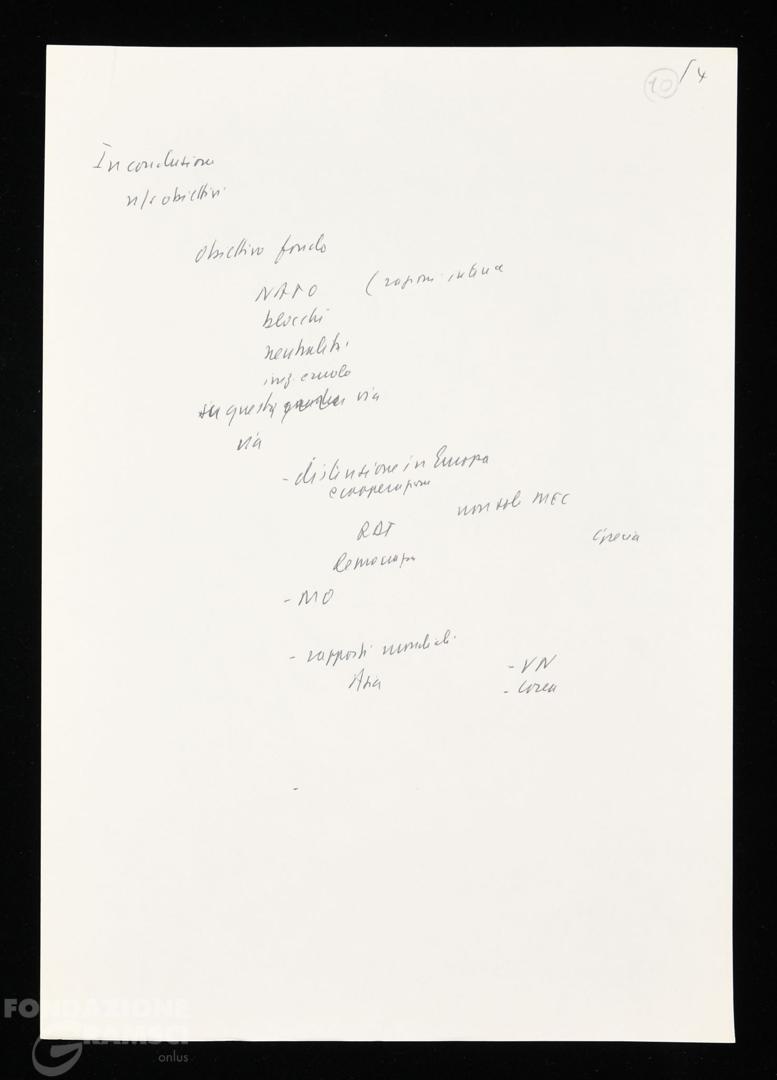 10 / 4
In conclusione
n/s obiettivi
Obiettivo fondo
NATO (ragioni interne
blocchi
neutralità
in questa via
via
- distensione in Europa
e cooperazione
non solo MEC
RDT
Grecia
Democrazia
- MO
- rapporti mondiali
Asia
- VN
- Corea
FONDAZIONE
GRAMSCI
onlus